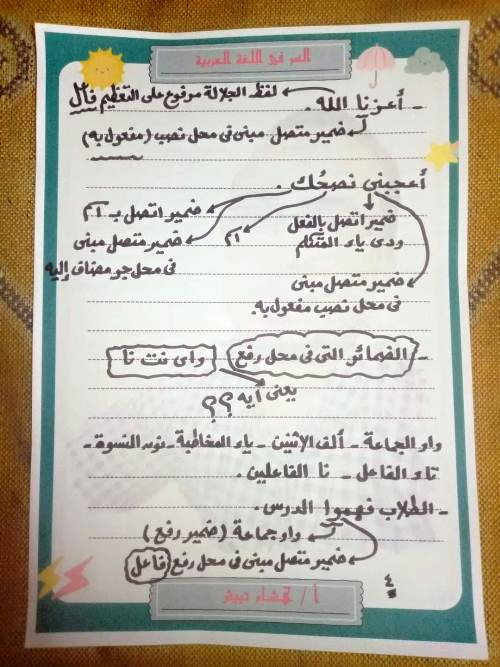 السر في اللغة العربية
- أعزنا الله. ← لفظ الجلالة مرفوع على التعظيم فاعل
ضمير متصل مبنى فى محل نصب (مفعول به)
أعجبنى نصحُك.
ضمير اتصل بالفعل ودى ياء المتكلم
ضمير متصل مبنى فى محل نصب مفعول به.
اسم
ضمير اتصل بـ اسم
ضمير متصل مبنى فى محل جر مضاف إليه
- الضمائر التى فى محل رفع واى نت نا
يعنى أيه ؟؟
واو الجماعة - ألف الإثنين - ياء المخاطبة - نون النسوة -
تاء الفاعل - نا الفاعلين.
- الطلاب فهموا الدرس.
واو جماعة (ضمير رفع)
ضمير متصل مبنى فى محل رفع فاعل
٤